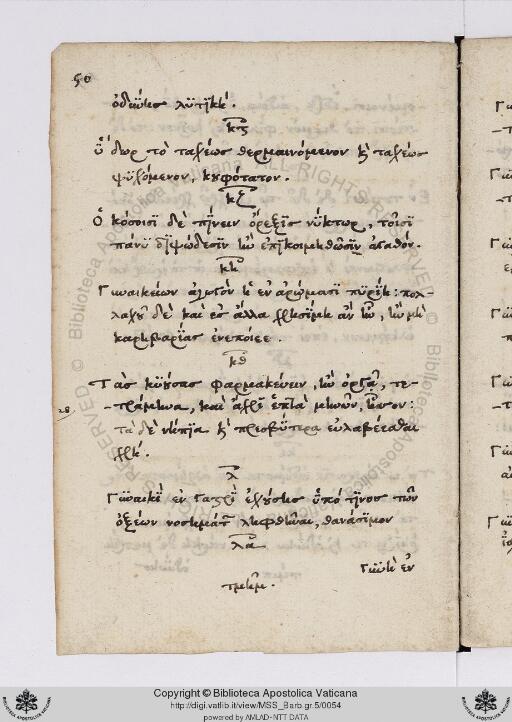 50
ὀδύνης λυτική.
κς
Ὕδωρ τὸ ταχέως θερμαινόμενον κ ταχέως
ψυχόμενον, κουφότατον.
κζ
Ὁκόσοισι δὲ πίνειν ὄρεξις νύκτωρ, τοῖσι
πάνυ διψώδεσιν ἢν ἐπικοιμηθῶσιν ἀγαθόν.
κη
Γυναικείων ἀγωγὸν ἡ ἐν ἀρώμασι πυρίη: πολ-
λαχῆ δὲ καὶ ἐς ἄλλα χρησίμη ἂν ἦν, ἢν μὴ
καρηβαρίας ἐνεποίεε.
κθ
Τὰς κυούσας φαρμακεύειν, ἢν ὀργᾷ, τε-
28 -τράμηνα, καὶ ἄχρι ἑπτὰ μηνῶν, ἧσσον:
τὰ δὲ νήπια κ πρεσβύτερα εὐλαβέεσθαι
χρή.
λ
Γυναικὶ ἐν γαστρὶ ἐχούσῃ ὑπό τινος τῶν
ὀξέων νοσημάτ ληφθῆναι, θανάσιμον
λα
Γυνὴ ἐν
Copyright © Biblioteca Apostolica Vaticana
http://digi.vatlib.it/view/MSS_Barb.gr.5/0054
powered by AMLAD-NTT DATA